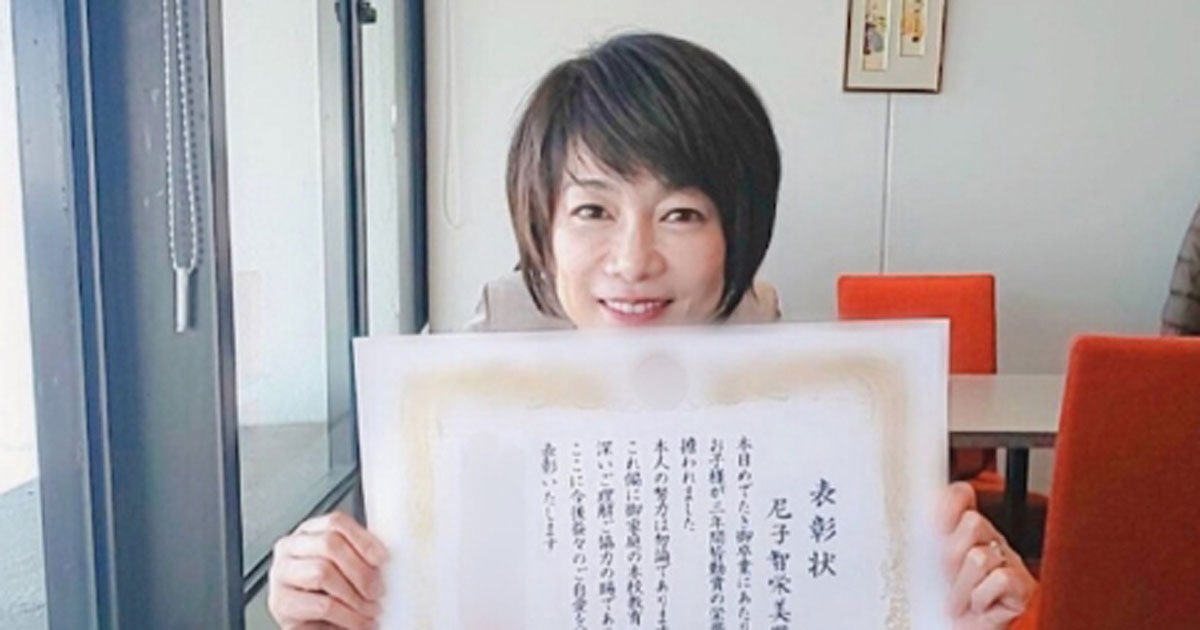 表彰状
尼子智栄美
本日めでたき御卒業にあた
お子様が三年間皆勤賞の栄
擔われました
本人の努力は勿論であります
これ偏に御家庭の本校教育
深いご理解ご協力の賜であ
ここに今後益々のご自愛を
表彰いたします